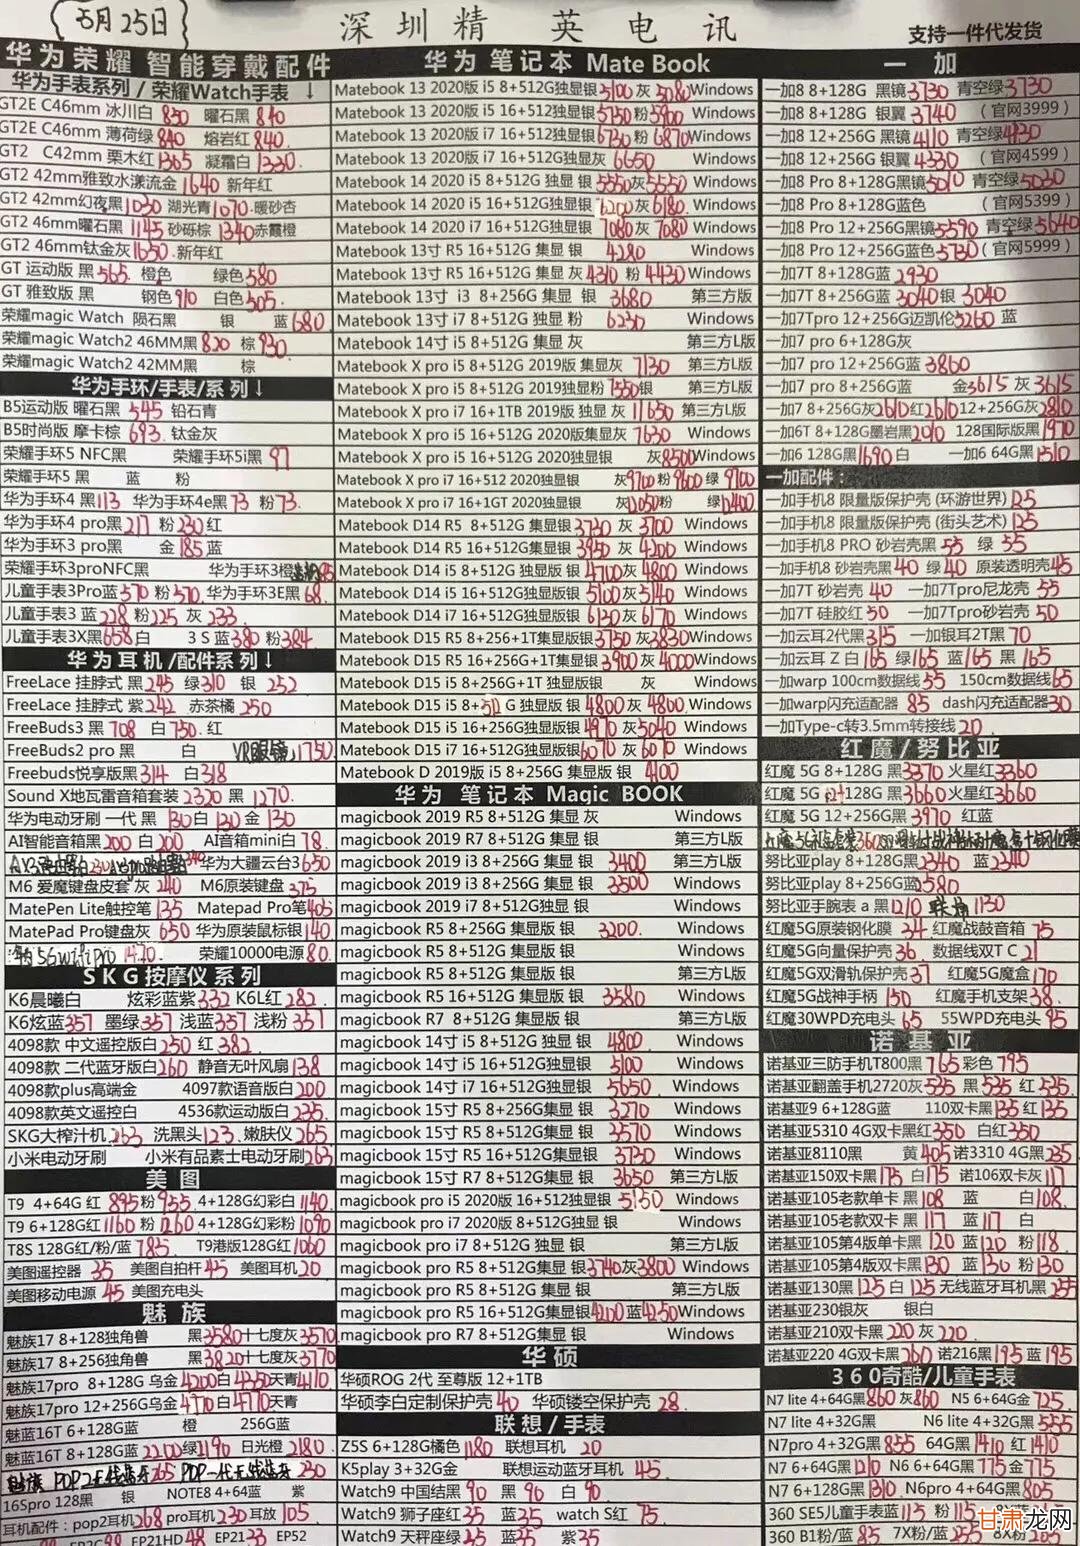 5月25日
深圳精英电讯
支持一件代发货
华为荣耀 智能穿戴配件
华为手表系列/荣耀Watch手表 ↓
GT2E C46mm 冰川白 850 曜石黑 840
GT2E C46mm 薄荷绿 840 熔岩红 840.
GT2 C42mm 栗木红 1365 凝霜白 1330.
GT2 42mm雅致水漾流金 1640 新年红
GT2 42mm幻夜黑 1030 湖光青 1070.暖砂杏
GT2 46mm曜石黑 1145 砂砾棕 1340 赤霞橙
GT2 46mm钛金灰 1650.新年红
GT 运动版 黑 565. 橙色 绿色 580
GT 雅致版 黑 钢色 910 白色 505.
荣耀magic Watch 陨石黑 银 蓝 680
荣耀magic Watch2 46MM黑 820 棕 930
荣耀magic Watch2 42MM黑 棕
华为手环/手表/系列↓
B5运动版 曜石黑 545 铅石青
B5时尚版 摩卡棕 693. 钛金灰
荣耀手环5 NFC黑 荣耀手环5i黑 97
荣耀手环5 黑 蓝 粉
华为手环4 黑 113 华为手环4e黑 73 粉 73.
华为手环4 pro黑 217 粉 230 红
华为手环3 pro黑 金 185 蓝
荣耀手环3proNFC黑 华为手环3橙
儿童手表3Pro蓝 570 粉 570. 华为手环3E黑 68
儿童手表3 蓝 228 粉 225 灰 233.
儿童手表3X黑 658 白 3 S 蓝 380 粉 384
华为耳机/配件系列↓
FreeLace 挂脖式 黑 245 绿 310 银 252
FreeLace 挂脖式 紫 242 赤茶橘 250
FreeBuds3 黑 708 白 750. 红
FreeBuds2 pro 黑 白 VR眼镜 1750
Freebuds悦享版黑 314 白 318
Sound X地瓦雷音箱套装 2320 黑 1270.
华为电动牙刷 一代 黑 130 白 130 金 130
AI智能音箱黑 200 白 200 AI音箱mini白 78.
华为大疆云台 3650
M6 爱魔键盘皮套 灰 240 M6原装键盘 375
MatePen Lite触控笔 135 Matepad Pro笔 405
MatePad Pro键盘灰 650 华为原装鼠标银 140
5Gwifi Pro 1470. 荣耀10000电源 80.
SKG按摩仪系列
K6晨曦白 炫彩蓝紫 332 K6L红 282.
K6炫蓝 357 墨绿 357 浅蓝 357 浅粉 357
4098款 中文遥控版白 250 红 382
4098款 二代蓝牙版白 260 静音无叶风扇 138
4098款plus高端金 4097款语音版白 200
4098款英文遥控白 4536款运动版白 235.
SKG大榨汁机 263 洗黑头 123. 嫩肤仪 265
小米电动牙刷 小米有品素士电动牙刷 263
美图
T9 4+64G 红 895 粉 955. 4+128G幻彩白 1140
T9 6+128G红 1160 粉 1260 4+128G幻彩粉 1090
T8S 128G红/粉/蓝 785 T9港版128G红 1060
美图遥控器 35 美图自拍杆 45 美图耳机 20
美图移动电源 45 美图充电头
魅族
魅族17 8+128独角兽 黑 3580 十七度灰 3570
魅族17 8+256独角兽 黑 3820 十七度灰 3770
魅族17pro 8+128G 乌金 4200 白 4250 天青 4110
魅族17pro 12+256G乌金 4770 白 4770 天青
魅蓝16T 6+128G蓝 橙 256G蓝
魅蓝16T 8+128G蓝 2200 绿 2190 日光橙 2180.
魅族 POP2无线蓝牙 265 POP一代无线蓝牙 230
16Spro 128黑 银 NOTE8 4+64蓝 紫
耳机配件:pop2耳机 268 pro耳机 230 耳放 105
EP21HD 48 EP21 33 EP52
华为 笔记本 Mate Book
Matebook 13 2020版 i5 8+512G独显银 5100 灰 5080 Windows
Matebook 13 2020版 i5 16+512独显银 5750 粉 5900 Windows
Matebook 13 2020版 i7 16+512独显银 6730 粉 6870 Windows
Matebook 13 2020版 i7 16+512G独显灰 6650 Windows
Matebook 14 2020 i5 8+512G 独显 银 5550 灰 5550 Windows
Matebook 14 2020 i5 16+512G 独显银 6200 灰 6180. Windows
Matebook 14 2020 i7 16+512G 独显银 7080 灰 7080 Windows
Matebook 13寸 R5 16+512G 集显 银 4280 Windows
Matebook 13寸 R5 16+512G 集显 灰 4310 粉 4430 Windows
Matebook 13寸 i3 8+256G 集显 银 3680 第三方版
Matebook 13寸 i7 8+512G 独显 粉 6230 Windows
Matebook 14寸 i5 8+512G 集显 灰 第三方L版
Matebook X pro i5 8+512G 2019版 集显灰 7130 第三方L版
Matebook X pro i5 8+512G 2019独显粉 7550 银 第三方L版
Matebook X pro i7 16+1TB 2019版 独显 灰 11650 第三方L版
Matebook X pro i5 16+512G 2020版集显灰 7630 Windows
Matebook X pro i5 16+512G 2020独显 灰 8500 Windows
Matebook X pro i7 16+512 2020独显 灰 9700 粉 9600 绿 9700
Matebook X pro i7 16+1GT 2020独显 灰 12050 粉 绿 12400
Matebook D14 R5 8+512G 集显银 3730 灰 3700 Windows
Matebook D14 R5 16+512G集显银 3950 灰 4200 Windows
Matebook D14 i5 8+512G 独显版 银 4700 灰 4800 Windows
Matebook D14 i5 16+512G独显版银 5100 灰 5140 Windows
Matebook D14 i7 16+512G独显版银 6130 灰 6170 Windows
Matebook D15 R5 8+256+1T集显版银 3750 灰 3830 Windows
Matebook D15 R5 16+256G+1T集显银 3900 灰 4000 Windows
Matebook D15 i5 8+256G+1T 独显版银 灰 Windows
Matebook D15 i5 8+512 G 独显版 银 4800 灰 4800 Windows
Matebook D15 i5 16+256G独显版银 4970 灰 5040 Windows
Matebook D15 i7 16+512G独显版银 6070 灰 6070 Windows
Matebook D 2019版 i5 8+256G 集显版 银 4100
华为 笔记本 Magic BOOK
magicbook 2019 R5 8+512G 集显 灰 Windows
magicbook 2019 R7 8+512G 集显 银 第三方L版
magicbook 2019 i3 8+256G 集显 银 3400 第三方L版
magicbook 2019 i3 8+256G 集显 银 3500 Windows
magicbook 2019 i7 8+512G 独显 银 Windows
magicbook R5 8+256G 集显版 银 3200. Windows
magicbook R5 8+512G 集显版 银 Windows
magicbook R5 8+512G 集显版 银 第三方L版
magicbook R5 16+512G 集显版 银 3580 Windows
magicbook R7 8+512G 集显版 银 第三方L版
magicbook 14寸 i5 8+512G 集显 银 4800 Windows
magicbook 14寸 i5 16+512G集显 银 5100 Windows
magicbook 14寸 i7 16+512G集显 银 5650 Windows
magicbook 15寸 R5 8+256G集显 银 3270 Windows
magicbook 15寸 R5 8+512G集显 银 3570 Windows
magicbook 15寸 R5 16+512G集显银 3730 Windows
magicbook 15寸 R7 8+512G集显 银 3650 第三方L版
magicbook pro i5 2020版 16+512独显银 5150 Windows
magicbook pro i7 2020版 8+512G独显 银 Windows
magicbook pro i7 8+512G 独显 银 第三方L版
magicbook pro R5 8+512G集显银 3740 灰 3800 Windows
magicbook pro R5 8+512G集显 银 第三方L版
magicbook pro R5 16+512G集显银 4200 蓝 4250 Windows
magicbook pro R7 8+512G集显 银 Windows
华硕
华硕ROG 2代 至尊版 12+1TB
华硕李白定制保护壳 40 华硕镂空保护壳 28.
联想/手表
Z5S 6+128G橘色 1180 联想耳机 20
K5play 3+32G金 联想运动蓝牙耳机 45.
Watch9 中国结黑 90 黑 90 白 90
Watch9 狮子座红 35 蓝 35 watch S红 75
Watch9 天秤座绿 25 蓝 25 紫 35
一加
一加8 8+128G 黑镜 3730 青空绿 3730
一加8 8+128G 银翼 3740 (官网3999)
一加8 12+256G 黑镜 4110 青空绿 4130
一加8 12+256G 银翼 4330 (官网4599)
一加8 Pro 8+128G黑镜 5010 青空绿 5030
一加8 Pro 8+128G蓝色 (官网5399)
一加8 Pro 12+256G黑镜 5590 青空绿 5640
一加8 Pro 12+256G蓝色 5730 (官网5999)
一加7T 8+128G蓝 2930
一加7T 8+256G蓝 3040 银 3040
一加7Tpro 12+256G迈凯伦 5260 蓝
一加7 pro 6+128G灰
一加7 pro 12+256G蓝 3860
一加7 pro 8+256G蓝 金 3615 灰 3615
一加7 8+256G灰 2610 红 2610 12+256G灰 2810
一加6T 8+128G墨岩黑 2010 128国际版黑 1970
一加6 128G黑 1690 白 一加6 64G黑 1510
一加配件:
一加手机8 限量版保护壳 (环游世界) 125
一加手机8 限量版保护壳 (街头艺术) 125
一加手机8 PRO 砂岩壳黑 55 绿 55
一加手机8 砂岩壳黑 40 绿 40 原装透明壳 45
一加7T 砂岩壳 40 一加7Tpro尼龙壳 55
一加7T 硅胶红 50 一加7Tpro砂岩壳 50
一加云耳2代黑 315 一加银耳2T黑 70
一加云耳 Z 白 165 绿 165 蓝 165 黑 165
一加warp 100cm数据线 55 150cm数据线 65
一加warp闪充适配器 85 dash闪充适配器 30
一加Type-c转3.5mm转接线 20
红魔/努比亚
红魔 5G 8+128G 黑 3370 火星红 3360
红魔 5G 12+128G 黑 3660 火星红 3660
红魔 5G 12+256G 黑 3970 红蓝
努比亚play 8+128G黑 2340 蓝 2340
努比亚play 8+256G蓝 2580
努比亚手腕表 a 黑 1210 联通 1130
红魔5G原装钢化膜 34 红魔战鼓音箱 75
红魔5G向量保护壳 36. 数据线双T C 21
红魔5G双滑轨保护壳 37 红魔5G魔盒 170
红魔5G战神手柄 150 红魔手机支架 38.
红魔30WPD充电头 65 55WPD充电头 95
诺基亚
诺基亚三防手机T800黑 765 彩色 795
诺基亚翻盖手机2720灰 535 黑 535 红 535.
诺基亚9 6+128G蓝 110双卡黑 135 红 135
诺基亚5310 4G双卡黑红 350 白红 350
诺基亚8110黑 黄 405 诺3310 4G黑 235
诺基亚150双卡黑 175 白 175 诺106双卡灰 117
诺基亚105老款单卡 黑 108 蓝 白 108.
诺基亚105老款双卡 黑 117 蓝 117 白
诺基亚105第4版单卡黑 120 蓝 120 粉 118
诺基亚105第4版双卡黑 130 蓝 130 粉 130
诺基亚130黑 125 白 125 无线蓝牙耳机黑 255
诺基亚230银灰 银白
诺基亚210双卡黑 220 灰 220
诺基亚220 4G双卡黑 260 诺216黑 195 蓝 195
360奇酷/儿童手表
N7 lite 4+64G黑 860 灰 860 N5 6+64G金 725.
N7 lite 4+32G黑 N6 lite 4+32G黑 555
N7pro 4+32G黑 855 64G黑 1410 红 1410
N7 6+64G黑 1210 N6 6+64G黑 775 金 775
N7 6+128G黑 1310. N6pro 4+64G黑 805
360 SE5儿童手表蓝 115 粉 115
360 B1粉/蓝 85 7X粉/蓝 255 8X粉 205
甘肃龙网